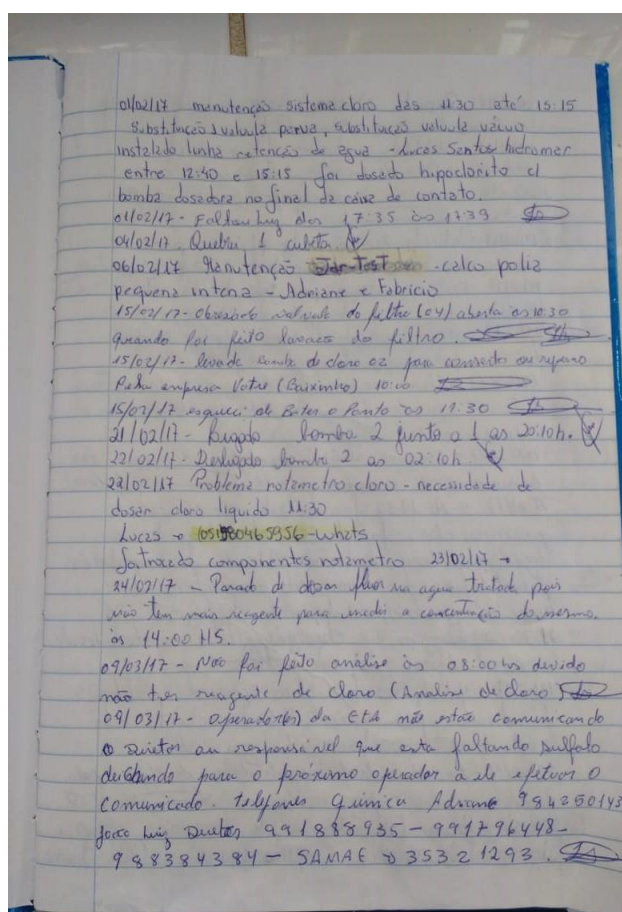 01/02/17 manutenção sistema cloro das 11:30 até 15:15
substituição valvula perua, substituição valvula vácuo
instalado linha retenção de agua - Lucas Santos hidromar
entre 12:40 e 15:15 foi dosado hipoclorito c/
bomba dosadora no final da caixa de contato.
01/02/17 - Faltou Luz das 17:35 às 17:39
04/02/17. Quebrei 1 cubeta.
06/02/17 Manutenção Jar-Test - calco polia
pequena interna - Adriane e Fabricio
15/02/17 - valvula do filtro (04) aberta às 10:30
quando foi feito lavacao do filtro.
15/02/17 - levada bomba de cloro 02 para conserto ou reparo
Pela empresa (Baixinho) 10:00
15/02/17 esqueci de Bater o Ponto às 11:30
21/02/17 - ligado bomba 2 junto a 1 as 20:10h.
22/02/17 - Desligado bomba 2 as 02:10h
22/02/17 Problema rotametro cloro - necessidade de
dosar cloro liquido 11:30
Lucas → - Whats
componentes rotametro 23/02/17 →
24/02/17 - Parado de dosar fluor na agua tratada pois
não tem mais reagente para medir a concentração do mesmo.
às 14:00 HS.
09/03/17 - Não foi feito análise às 08:00 hs devido
não ter reagente de cloro (Análise de cloro)
09/03/17 - operador(es) da ETA não estão comunicando
o Diretor ou responsável que esta faltando sulfato
deixando para o próximo operador a ele efetuar o
comunicado. telefones Quimica Adriane 984250143
João Luiz Diretor 991888935 - 991796448 -
988384384 - SAMAE → 35321293.